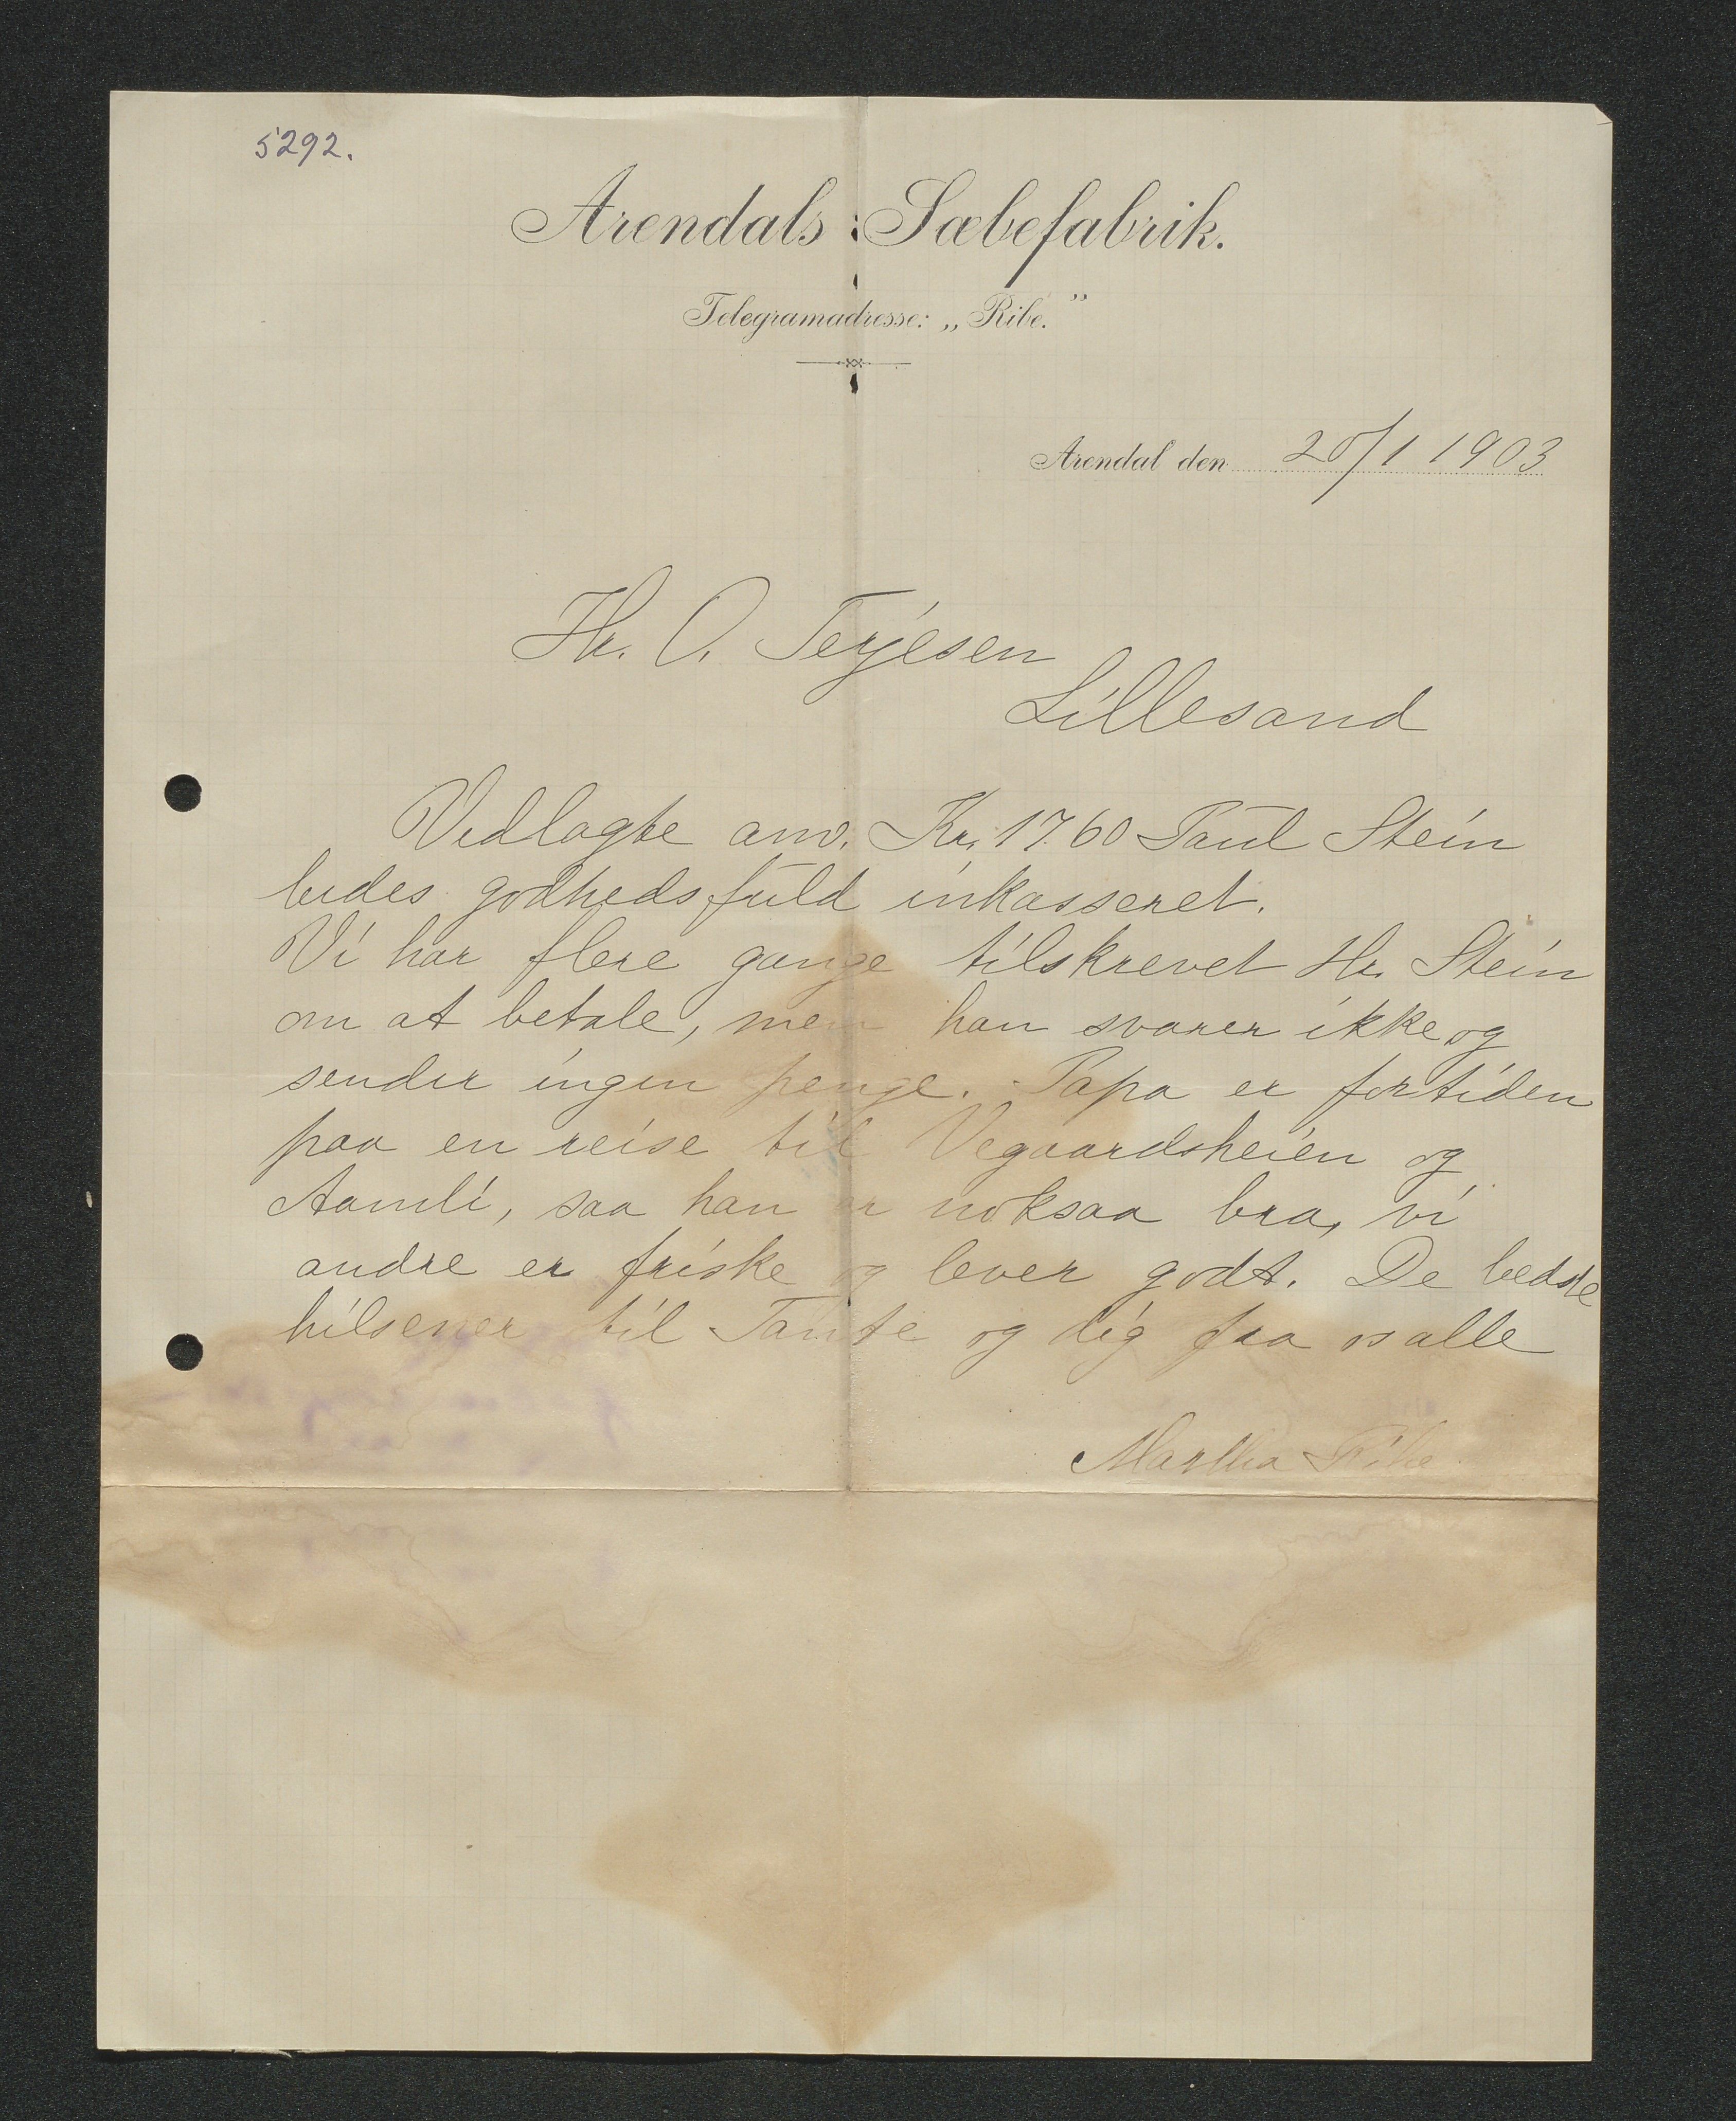 5292.
Arendals Sæbefabrik.
Telegramadresse: „Ribe."
Arendal den 20/1 1903
Hr. O. Terjesen
Lillesand
Vedlagte anv. Kr. 17.60 Paul Stein
bedes godhedsfuld inkasseret.
Vi har flere gange tilskrevet Hr. Stein
om at betale, men han svarer ikke og
sender ingen penge. Papa er fortiden
paa en reise til Vegaardsheien og
Aamli, saa han er noksaa bra, vi
andre er friske og lever godt. De bedste
hilsener til Tante og dig fra os alle
Martha Ribe